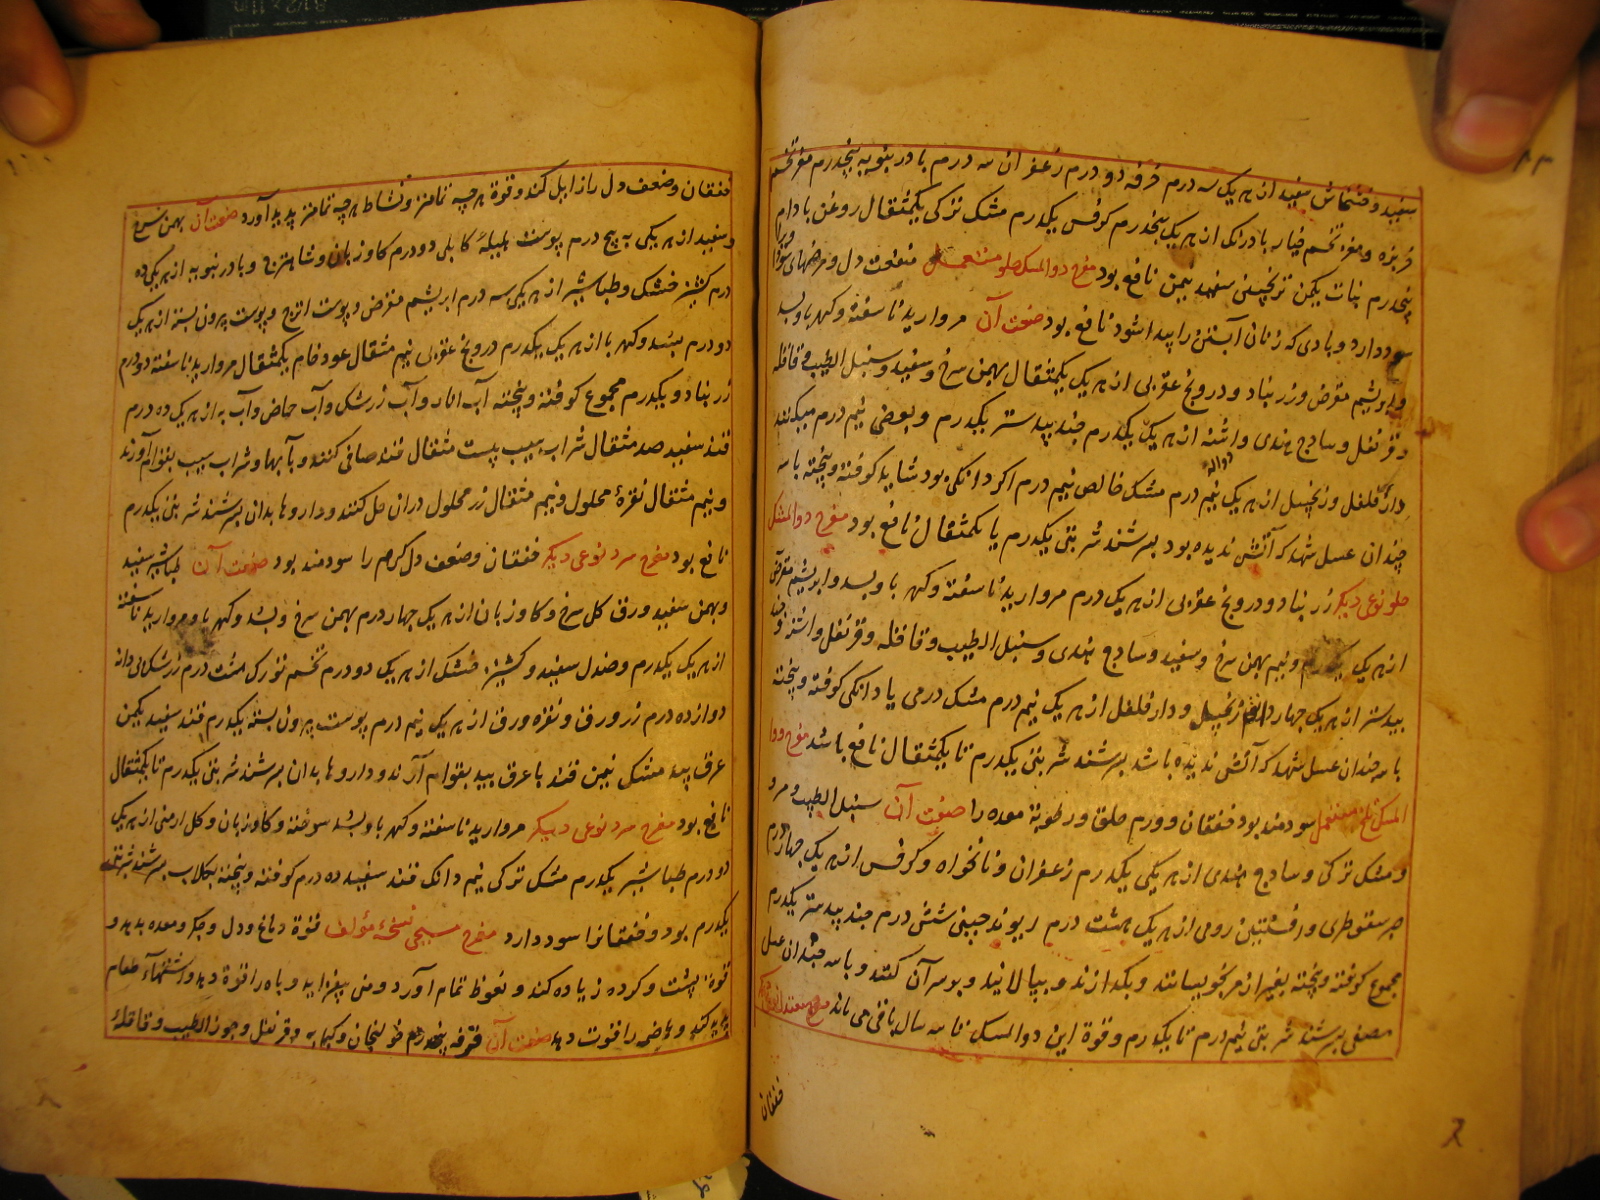 سفید و خشخاش سفید از هر یک سه درم خرفه دو درم زعفران سه درم بادرنبویه پنجدرم مغز تخم
خربزه و مغز تخم خیار بادرنک از هر یک پنجدرم کرفس یکدرم مشک ترکی یکمثقال روغن بادام
پنجدرم نبات یکمن ترنجبین سفید نیمن نافع بود مفرح دوالمسک حلو مستعمل منفعت دل و مرضهای سودا را
سود دارد و بادی که زنان آبستن را پیدا شود نافع بود صفت آن مروارید ناسفته و کهربا و بسد
و ابریشم مقرض و زرنباد و درونج عقربی از هر یک یکمثقال بهمن سرخ و سفید و سنبل الطیب و قاقله
و قرنفل و ساذج هندی و اشنه از هر یک یکدرم جندبیدستر یکدرم و بعضی نیم درم میکنند
دارفلفل و زنجبیل از هر یک نیم درم مشک خالص نیم درم اکر دانکی بود شاید کوفته و پیخته با سه
چندان عسل شهد که آتش ندیده بود بسرشند شربتی یکدرم یا یکمثقال نافع بود مفرح دوالمشک
حلو نوعی دیکر زرنباد و درونج عقربی از هر یک درم مروارید ناسفته و کهربا و بسد و ابریشم مقرض
از هر یک یکدرم و نیم بهمن سرخ و سفید و ساذج هندی و سنبل الطیب و قاقله و قرنفل و اشنه و جند
بیدستر از هر یک چهار دانک زنجبیل و دارفلفل از هر یک نیم درم مشک درمی یا دانکی کوفته و پیخته
با سه چندان عسل شهد که آتش ندیده باشد بسرشند شربتی یکدرم تا یکمثقال نافع باشد مفرح دوا
المسک تلخ مستعمل سودمند بود خفقان و ورم حلق و رطوبة معده را صفت آن سنبل الطیب و مر و
و مشک ترکی و ساذج هندی از هر یکی یکدرم زعفران و نانخواه و کرفس از هر یک چهار درم
صبر سقوطری و افسنتین رومی از هر یک هشت درم ریوند چینی شش درم جندبیدستر یکدرم
مجموع کوفته و پیخته بغیر از مر بخویسانند و بکدازند و بپالایند و بر سر آن کنند و با سه چندان عسل
مصفی بسرشند شربتی نیم درم تا یکدرم و قوة این دوالمسک تا سه سال باقی می ماند مفرح معتدل
خفقان
خفقان و ضعف دل را زایل کند و قوة هر چه تمامتر و نشاط هر چه تمامتر پدید آورد صفت آن بهمن سرخ
و سفید از هر یکی پنج درم پوست هلیلهٔ کابلی دو درم کاوزبان و شاهترج و بادرنبویه از هر یکی ده
درم کشنیز خشک و طباشیر از هر یکی سه درم ابریشم مقرض و پوست اترج و پوست بیرون پسته از هر یک
دو درم بسد و کهربا از هر یک یکدرم درونج عقربی نیم مثقال عود خام یکمثقال مروارید ناسفته دو درم
زرنباد و یکدرم مجموع کوفته و پیخته آب انار و آب زرشک و آب حماض و آب به از هر یک ده درم
قند سفید صد مثقال شراب سیب بیست مثقال قند صافی کنند و بآبها و شراب سیب بقوام آورند
و نیم مثقال نقرهٔ محلول و نیم مثقال زر محلول در ان حل کنند و داروها بدان بسرشند شربتی یکدرم
نافع بود مفرح سرد نوعی دیکر خفقان و ضعف دل کرم را سودمند بود صفت آن طباشیر سفید
و بهمن سفید ورق کل سرخ و کاوزبان از هر یک چهار درم بهمن سرخ و بسد و کهربا و مروارید ناسفته
از هر یک یکدرم و صندل سفید و کشنیز خشک از هر یک دو درم تخم تورک هشت درم زرشک بی دانه
دوازده درم زر ورق و نقره ورق از هر یک نیم درم پوست بیرون پسته یکدرم قند سفید یکمن
عرق بید مشک نیمن قند با عرق بید بقوام آرند و داروها بدان بسرشند شربتی یکدرم تا یکمثقال
نافع بود مفرح سرد نوعی دیکر مروارید ناسفته و کهربا و بسد سوخته و کاوزبان و کل ارمنی از هر یک
دو درم طباشیر یکدرم مشک ترکی نیم دانک قند سفید ده درم کوفته و پیخته بکلاب بسرشند شربتی
یکدرم بود و خفقانرا سود دارد مفرح مسیحی نسخهٔ مؤلف قوة دماغ و دل و جکر و معده بدهد و
قوة پشت و کرده زیاده کند و نعوظ تمام آورد و منی بیفزاید و باه را قوة دهد و اشتهاء طعام
پدید کند و هاضمه را قوت دهد صفت آن قرفه پنجدرم خولنجان و کبابه و قرنفل و جوزالطیب و قاقلهٔ